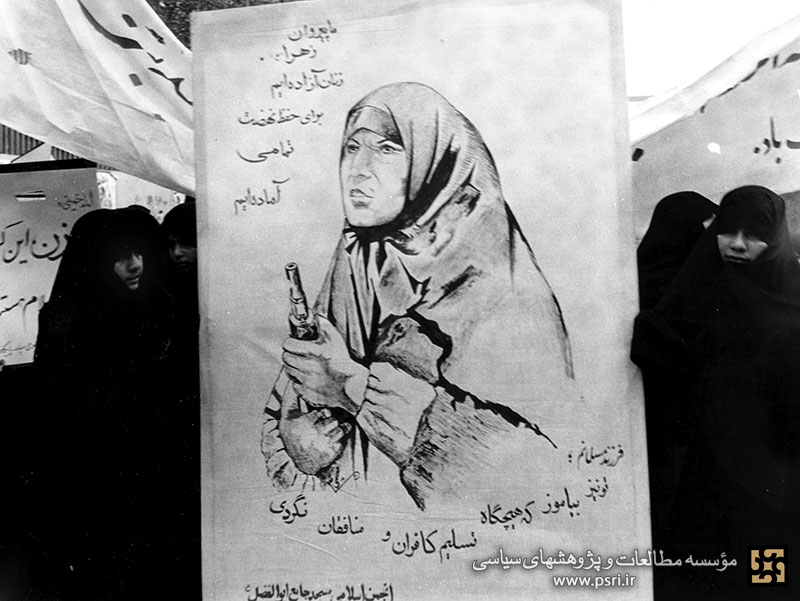 ما پیروان
زهراء.
زنان آزاده‌ایم
برای حفظ نهضت
تمامی
آماده‌ایم
فرزند مسلمانم؛
تو نیز بیاموز که هیچگاه
تسلیم کافران و منافقان نگردی
انجمن اسلامی مسجد جامع ابوالفضل ع
زن، این
باد.
مؤسسه مطالعات و پژوهشهای سیاسی
www.psri.ir